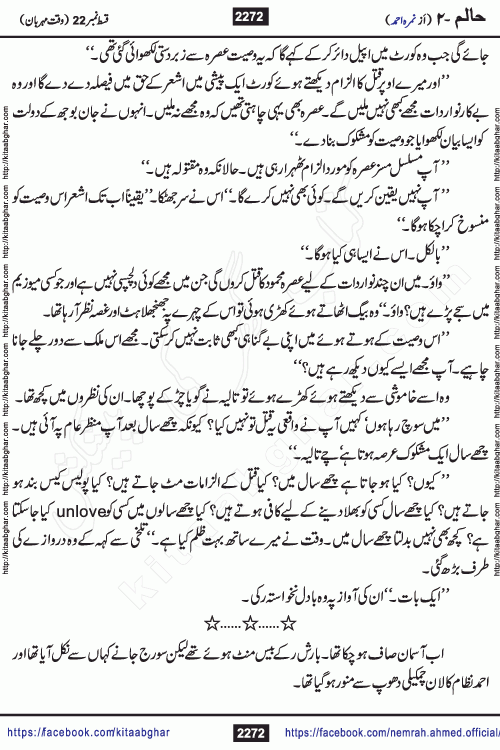 حالم -۲ (از نمرہ احمد)
2272
قسط نمبر 22 (وقت مہربان)
جائے گی جب وہ کورٹ میں اپیل دائر کر کے کہے گا کہ یہ وصیت عصرہ سے زبردستی لکھوائی گئی تھی۔‘‘
’’اور میرے اوپر قتل کا الزام دیکھتے ہوئے کورٹ ایک پیشی میں اشعر کے حق میں فیصلہ دے دے گا اور وہ
بے کار نواردات مجھے بھی نہیں ملیں گے۔ عصرہ بھی یہی چاہتی تھیں کہ وہ مجھے نہ ملیں۔ انہوں نے جان بوجھ کے دولت
کو ایسا بیان لکھوایا جو وصیت کو مشکوک بنا دے۔‘‘
’’آپ مسلسل مسز عصرہ کو مورد الزام ٹھہرا رہی ہیں۔ حالانکہ وہ مقتولہ ہیں۔‘‘
’’آپ نہیں یقین کریں گے۔ کوئی بھی نہیں کرے گا۔‘‘ اس نے سر جھٹکا۔ ’’یقیناً اب تک اشعر اس وصیت کو
منسوخ کرا چکا ہوگا۔‘‘
’’بالکل۔ اس نے ایسا ہی کیا ہوگا۔‘‘
’’واؤ۔ میں ان چند نواردات کے لیے عصرہ محمود کا قتل کروں گی جن میں مجھے کوئی دلچسپی نہیں ہے اور جو کسی میوزیم
میں سجے پڑے ہیں؟ واؤ۔‘‘ وہ بیگ اٹھاتے ہوئے کھڑی ہوئی تو اس کے چہرے پہ جھنجھلاہٹ اور غصہ نظر آرہا تھا۔
’’اس وصیت کے ہوتے ہوئے میں اپنی بے گناہی بھی ثابت نہیں کرسکتی۔ مجھے اس ملک سے دور چلے جانا
چاہیے۔ آپ مجھے ایسے کیوں دیکھ رہے ہیں؟‘‘
وہ اسے خاموشی سے دیکھتے ہوئے کھڑے ہوئے تو تالیہ نے گویا چڑ کے پوچھا۔ ان کی نظروں میں کچھ تھا۔
’’میں سوچ رہا ہوں‘ کہیں آپ نے واقعی یہ قتل تو نہیں کیا؟ کیونکہ چھے سال بعد آپ منظر عام پہ آئی ہیں۔
چھے سال ایک مشکوک عرصہ ہوتا ہے‘ چے تالیہ۔‘‘
’’کیوں؟ کیا ہوجاتا ہے چھے سال میں؟ کیا قتل کے الزامات مٹ جاتے ہیں؟ کیا پولیس کیس بند ہو
جاتے ہیں؟ کیا چھے سال کسی کو بھلا دینے کے لیے کافی ہوتے ہیں؟ کیا چھے سالوں میں کسی کو unlove کیا جاسکتا
ہے؟ کچھ بھی نہیں بدلتا چھے سال میں۔ وقت نے میرے ساتھ بہت ظلم کیا ہے۔‘‘ تلخی سے کہہ کے وہ دروازے کی
طرف بڑھ گئی۔
’’ایک بات۔‘‘ ان کی آواز پہ وہ بادل نخواستہ رکی۔
☆......☆......☆
اب آسمان صاف ہوچکا تھا۔ بارش رکے بیس منٹ ہوئے تھے لیکن سورج جانے کہاں سے نکل آیا تھا اور
احمد نظام کا لان چمکیلی دھوپ سے منور ہوگیا تھا۔
https://facebook.com/kitaabghar
2272
https://facebook.com/nemrah.ahmed.official/
http://kitaabghar.com
http://kitaabghar.com
http://kitaabghar.com
http://kitaabghar.com
http://kitaabghar.com